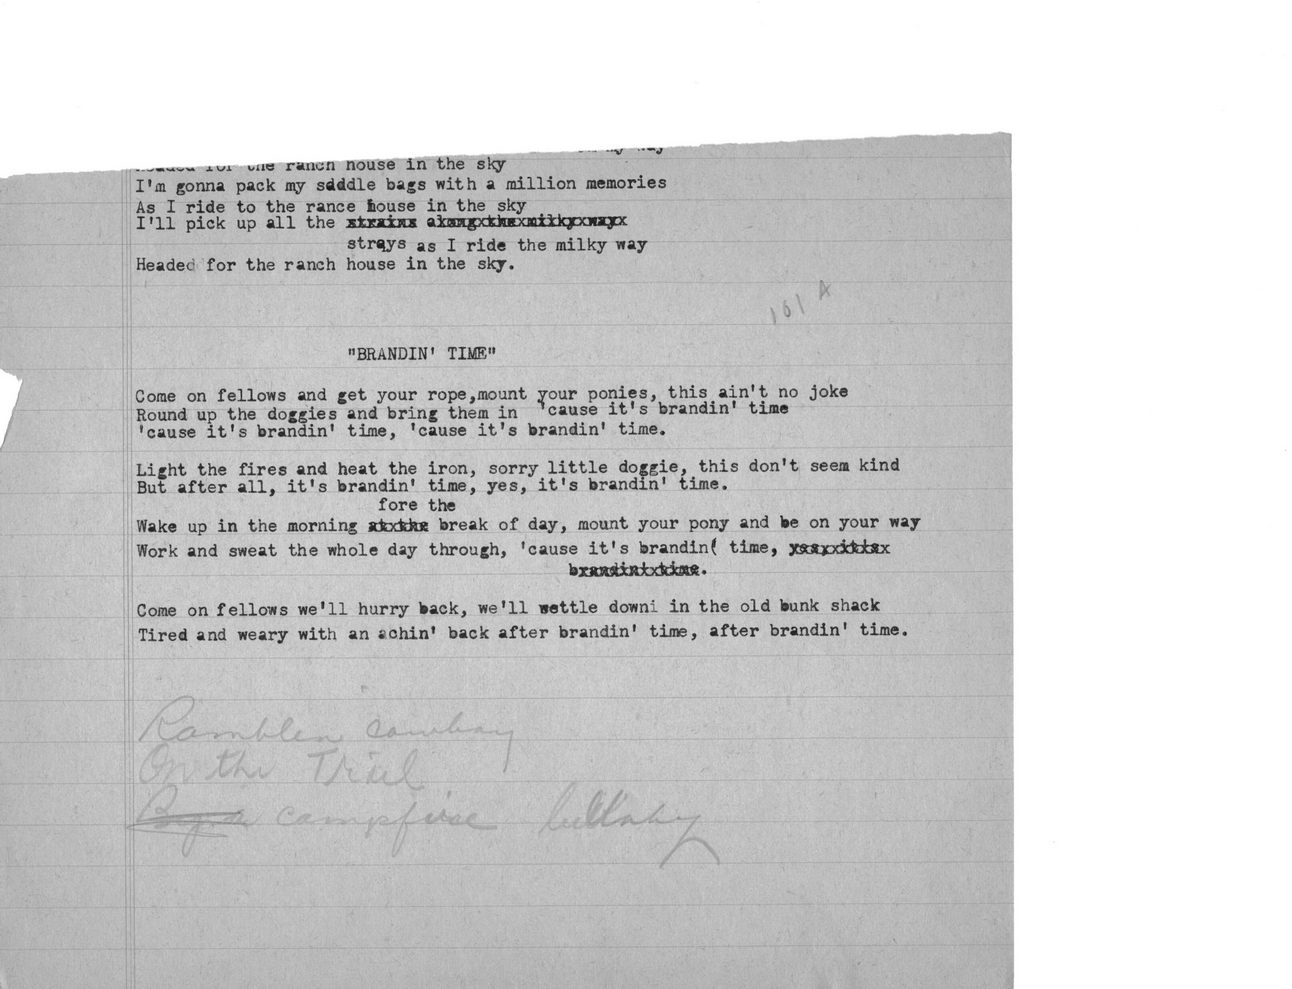 my way
Headed for the ranch house in the sky
I'm gonna pack my saddle bags with a million memories
As I ride to the rance house in the sky
I'll pick up all the strains alongxthexmilkyxwayx
strays as I ride the milky way
Headed for the ranch house in the sky.
101 A
"BRANDIN' TIME"
Come on fellows and get your rope,mount your ponies, this ain't no joke
Round up the doggies and bring them in 'cause it's brandin' time
'cause it's brandin' time, 'cause it's brandin' time.
Light the fires and heat the iron, sorry little doggie, this don't seem kind
But after all, it's brandin' time, yes, it's brandin' time.
fore the
Wake up in the morning atxthe break of day, mount your pony and be on your way
Work and sweat the whole day through, 'cause it's brandin( time, yesxxitxsx
brandin'xtime.
Come on fellows we'll hurry back, we'll settle downi in the old bunk shack
Tired and weary with an achin' back after brandin' time, after brandin' time.
Ramblen cowboy
On the Trial
By a campfire lullaby